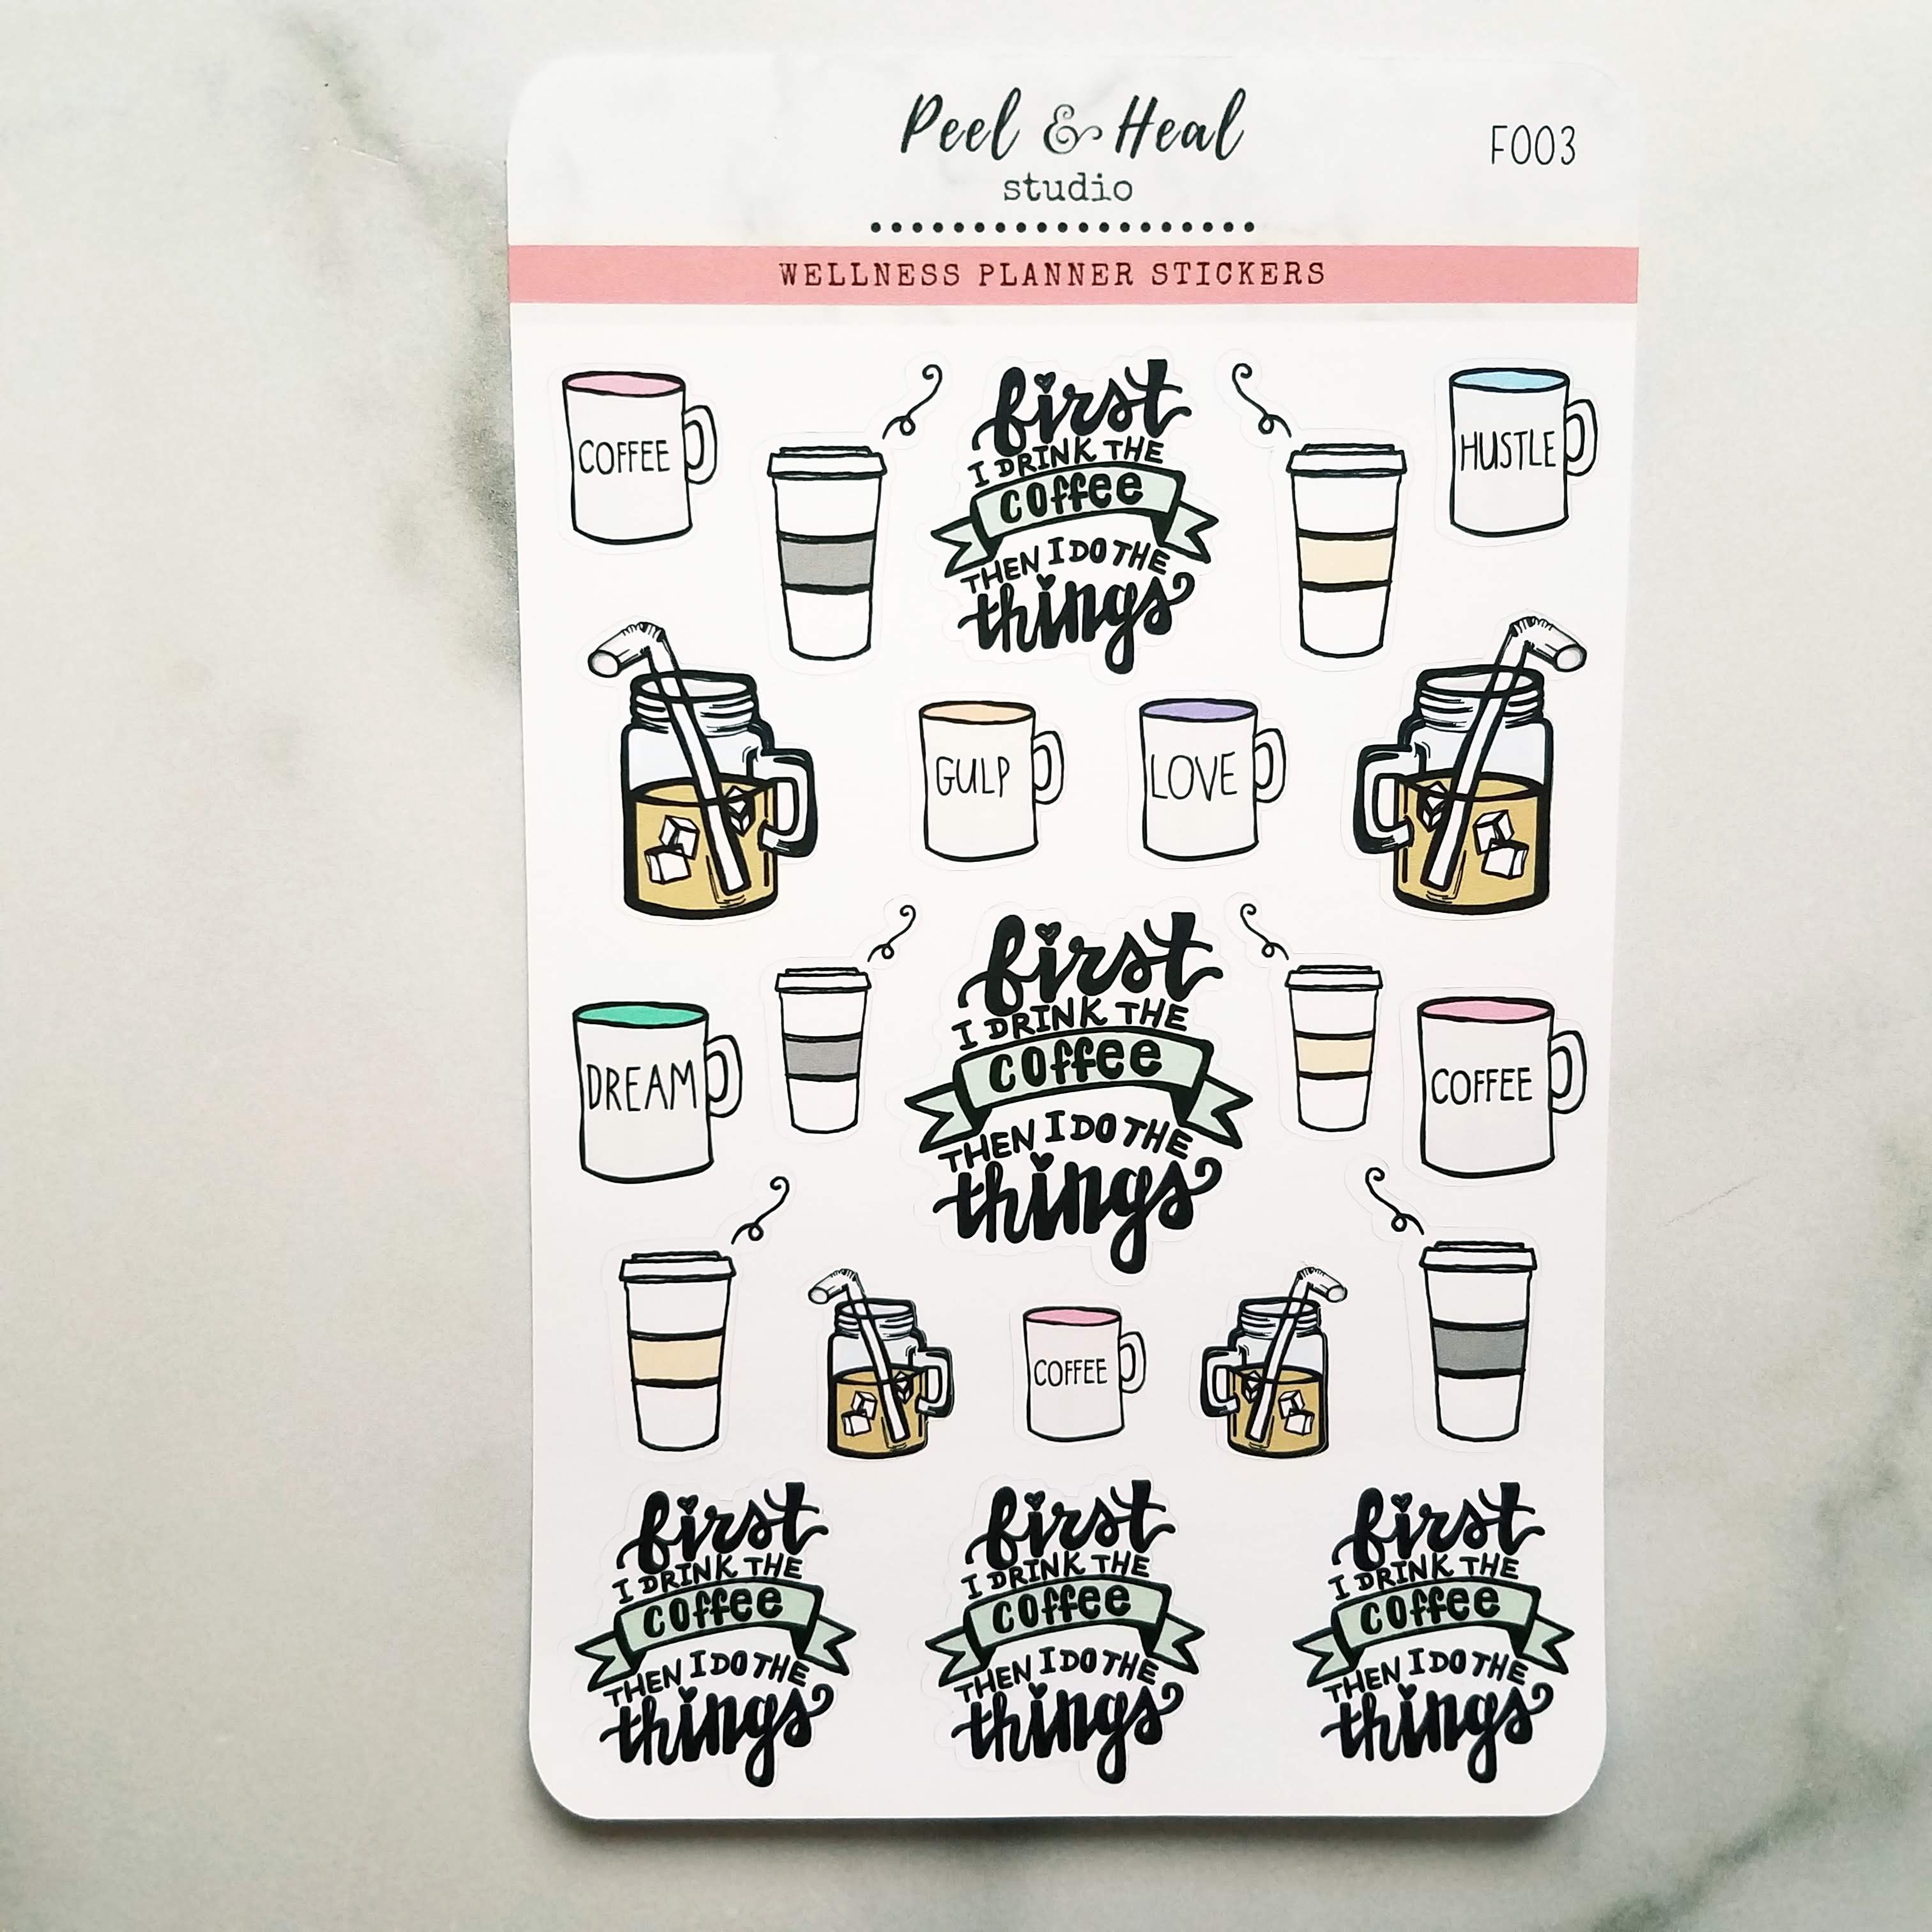 Peel & Heal
studio
F003
WELLNESS PLANNER STICKERS
COFFEE
first
I DRINK THE
coffee
THEN I DO THE
things
HUSTLE
GULP
LOVE
DREAM
first
I DRINK THE
coffee
THEN I DO THE
things
COFFEE
COFFEE
first
I DRINK THE
coffee
THEN I DO THE
things
first
I DRINK THE
coffee
THEN I DO THE
things
first
I DRINK THE
coffee
THEN I DO THE
things